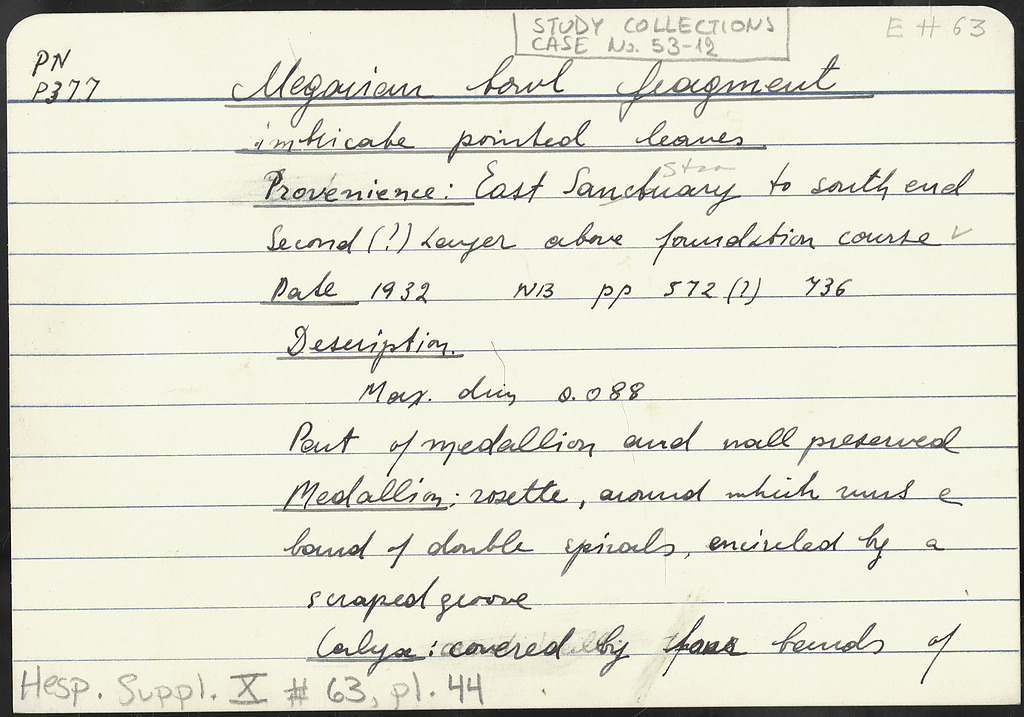 STUDY COLLECTIONS
CASE No. 53-12
E # 63
PN
P377
Megarian bowl fragment
imbricate pointed leaves
Stoa
Provenience: East Sanctuary to south end
Second (?) Layer above foundation course ✓
Date 1932 NB pp 572 (?) 736
Description.
Max. dim 0.088
Part of medallion and wall preserved
Medallion: rosette, around which runs a
band of double spirals, encircled by a
scraped groove
Calyx: covered by four bands of
Hesp. Suppl. X # 63, pl. 44